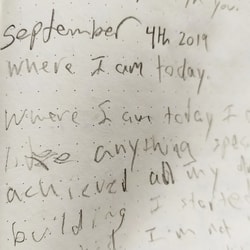 you.
September 4th 2019
where I am today.
Where I am today I
like anything spec
achieved all my
building I started
I'm not